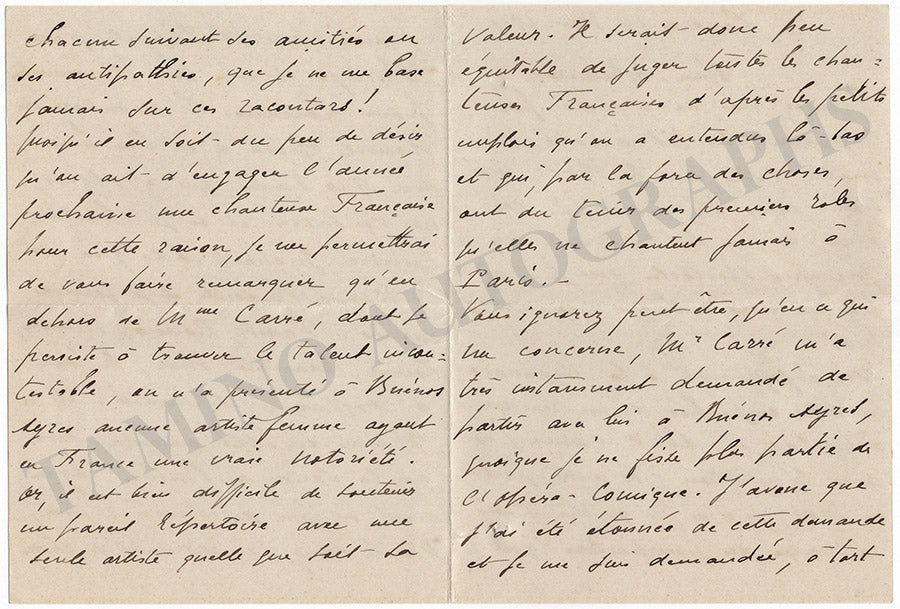 chacun suivant ses amitiés ou
ses antipathies, que je ne me base
jamais sur ces racontars!
quoiqu'il en soit du peu de désir
qu'on ait d'engager l'année
prochaine une chanteuse Française
pour cette raison, je me permettrai
de vous faire remarquer qu'en
dehors de Mme Carré, dont je
persiste à trouver le talent incon-
testable, on n'a présenté à Buénos
Ayres aucune artiste femme ayant
en France une vraie notoriété.
Or, il est bien difficile de soutenir
un pareil Répertoire avec une
seule artiste quelle que soit sa
valeur. Il serait donc peu
équitable de juger toutes les chan-
teuses Françaises d'après les petits
emplois qu'on a entendus là-bas
et qui, par la force des choses,
ont du tenir des premiers rôles
qu'elles ne chantent jamais à
Paris.-
Vous ignorez peut être, qu'en ce qui
me concerne, Mr Carré m'a
très instamment demandé de
partir avec lui à Buénos Ayres,
quoique je ne fisse plus partie de
l'Opéra-Comique. J'avoue que
j'ai été étonnée de cette demande
et je me suis demandée, à tort
TAMINO AUTOGRAPHS